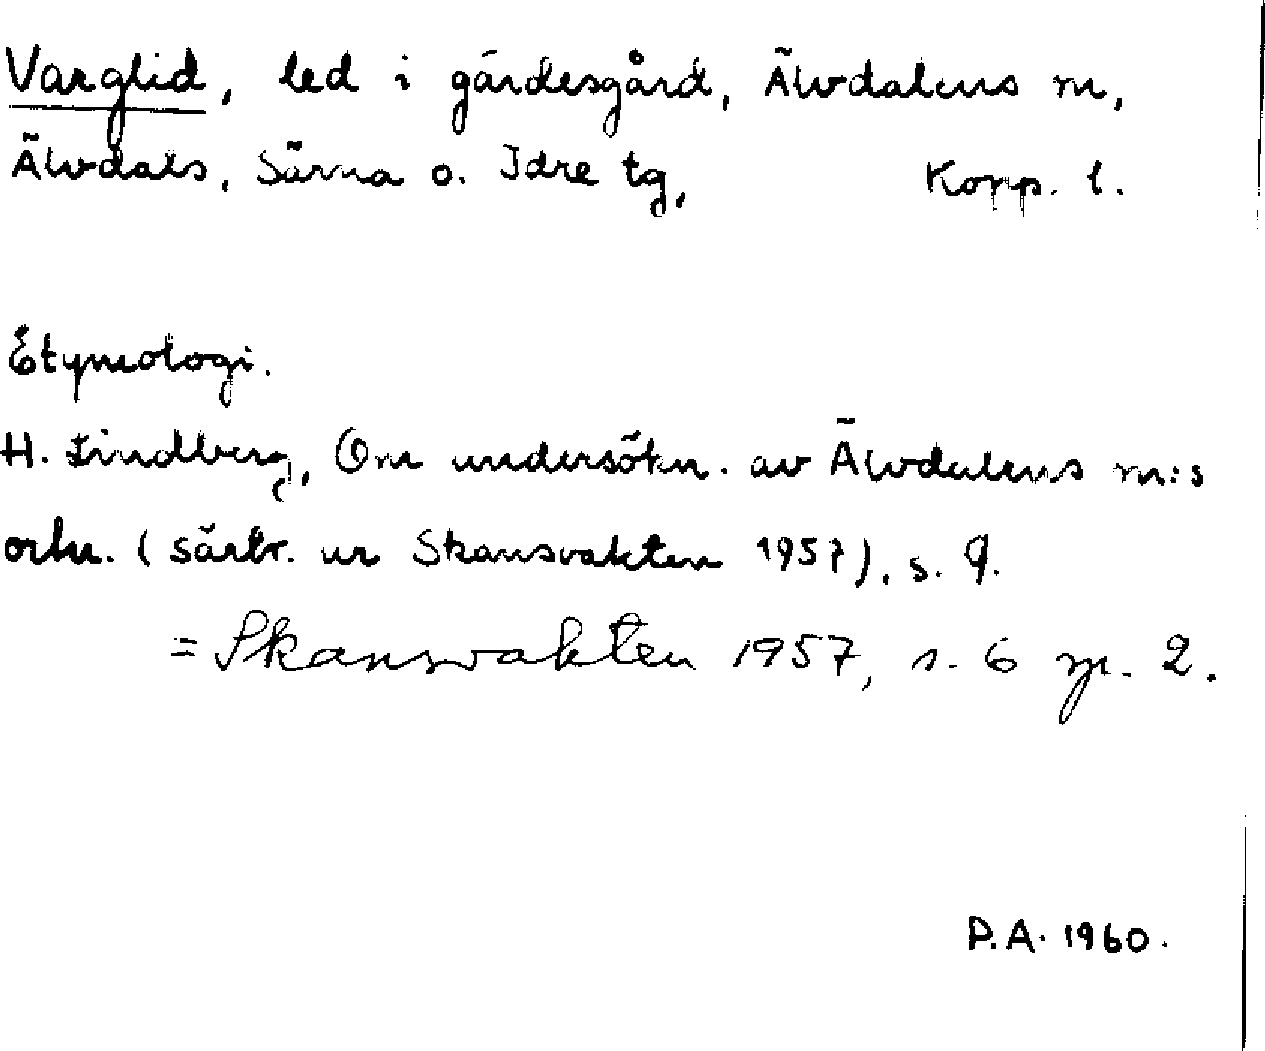 Varglid, led i gärdesgård, Älvdalens m,
Älvdals, Särna o. Idre tg, Kopp. l.
Etymologi.
H. Lindberg, Om undersökn. av Älvdalens m:s
ortn. (särtr. ur Skansvakten 1957), s. 9.
= Skansvakten 1957, s. 6 sp. 2.
P.A. 1960.